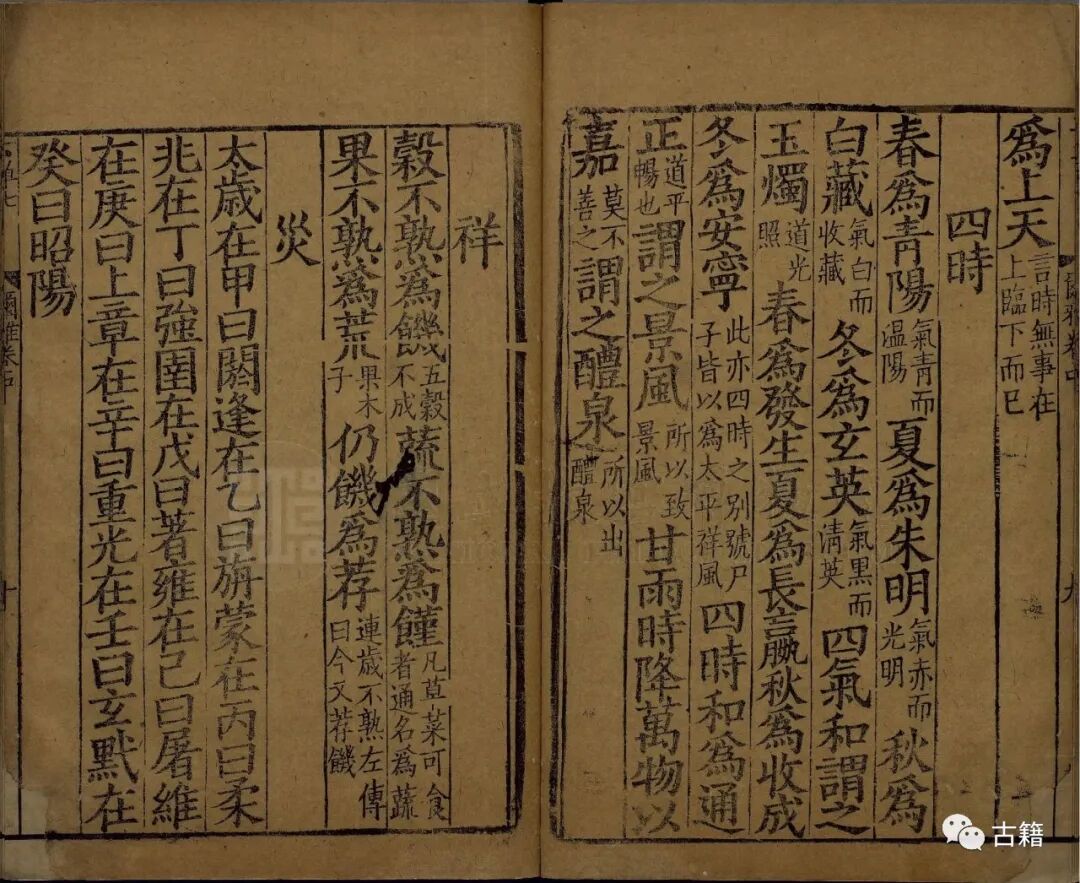 爲上天言時無事在上臨下而已
四時
春爲青陽氣青而温陽夏爲朱明氣赤而光明秋爲
白藏氣白而收藏冬爲玄英氣黑而清英四氣和謂之
玉燭道光照春爲發生夏爲長嬴秋爲收成
冬爲安寧此亦四時之別號尸子皆以爲太平祥風四時和爲通
正道平暢也謂之景風所以致景風甘雨時降萬物以
嘉莫不善之謂之醴泉所以出醴泉
祥
穀不熟爲饑五穀不成蔬不熟爲饉凡草菜可食者通名爲蔬
果不熟爲荒果木子仍饑爲荐連歲不熟左傳曰今又荐饑
災
太歲在甲曰閼逢在乙曰旃蒙在丙曰柔
兆在丁曰強圉在戊曰著雍在己曰屠維
在庚曰上章在辛曰重光在壬曰玄默在
癸曰昭陽
爾雅卷中
十
古籍